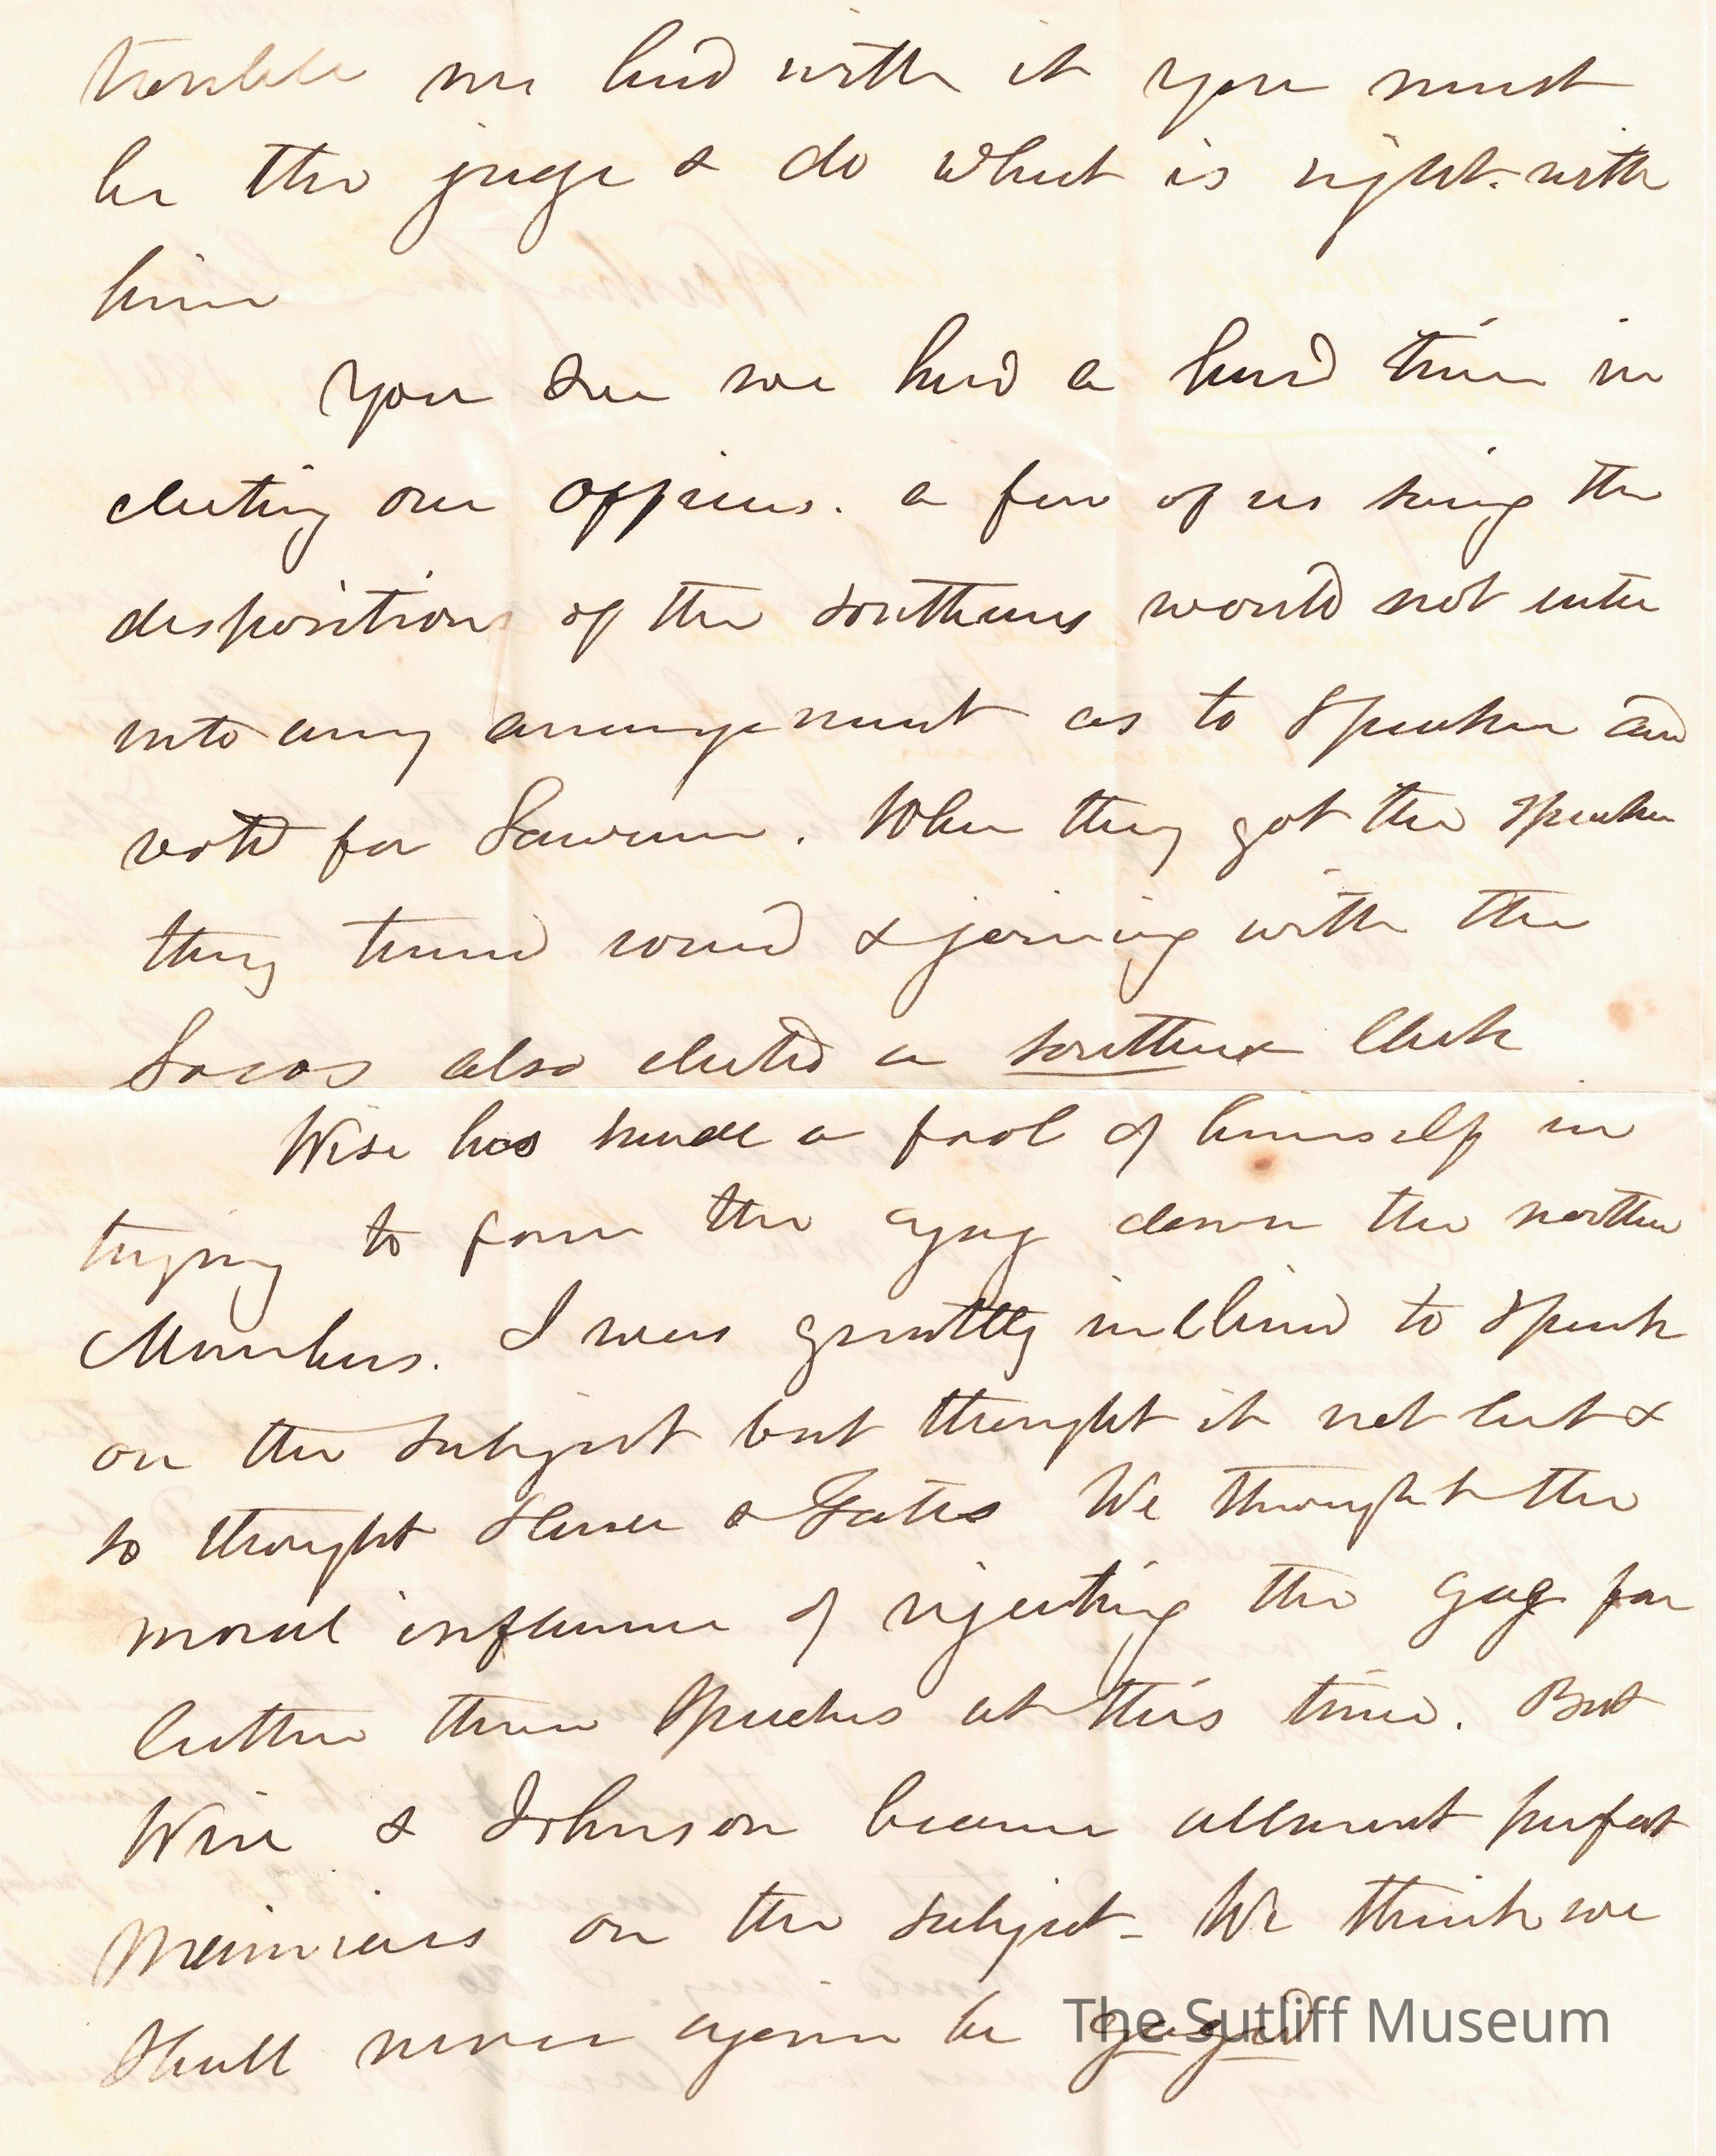 trouble we had with it you must
be the judge & do what is right with
him
You see we had a hard time in
electing our officers. a few of us seeing the
disposition of the southerns would not enter
into any arrangement as to Speaker and
voted for Lawrence. When they got the Speaker
they turned round & joining with the
Locos also elected a southern Clerk
Wise has made a fool of himself in
trying to force the gag down the northern
Members. I was greatly inclined to speak
on the subject but thought it not best &
so thought Slade & Gates We thought the
moral influence of rejecting the gag far
better than Speeches at this time. But
Wise & Johnson became allmost perfect
Maniacs on the subject - We think we
shall never again be gaged
The Sutliff Museum